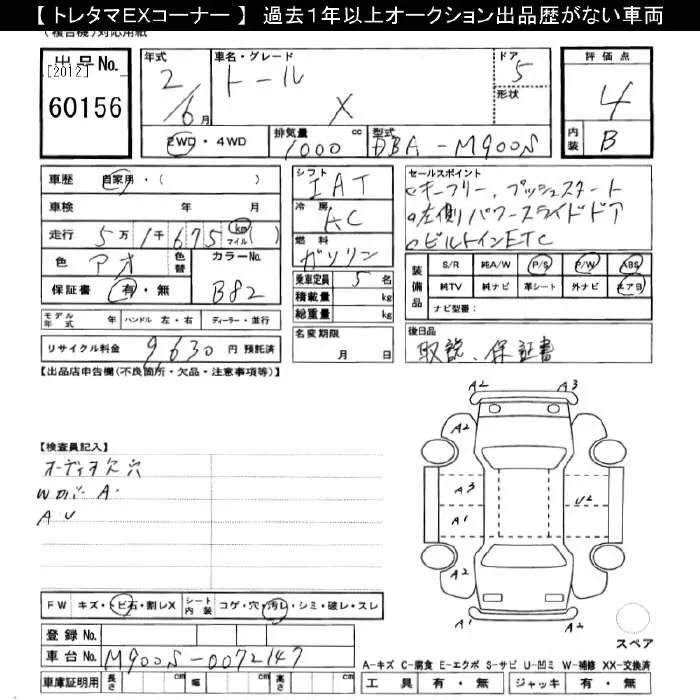 【 トレタマEXコーナー 】 過去1年以上オークション出品歴がない車両
(複合機)対応用紙
出品No.
[2012]
60156
年式 2/6月
車名・グレード トール X
ドア 5
形状
評価点 4
内装 B
2WD・4WD
排気量 1000 cc
型式 DBA-M900S
車歴 自家用・( )
車検 年 月
走行 5万1千675 km マイル ( )
色 アオ 色替
カラーNo. B82
保証書 有・無
シフト IAT
冷房 AC
燃料 ガソリン
乗車定員 5 名
積載量 kg
総重量 kg
セールスポイント
キーフリー、プッシュスタート
左側パワースライドドア
ビルトインETC
装備品 S/R 純A/W P/S P/W ABS
純TV 純ナビ 革シート 外ナビ エアB
ナビ型番:
モデル年式 年 ハンドル 左・右 ディーラー・並行
リサイクル料金 9,630 円 預託済
名変期限 月 日
後日品
取説、保証書
【出品店申告欄(不良箇所・欠品・注意事項等)】
A2 A3
A2
A3 U2
A1
A1 A2
【検査員記入】
オーディオ欠 穴
A U
FW キズ・トビ石・割レX シート内装 コゲ・穴・汚レ・シミ・破レ・スレ
登録No.
車台No. M900S-0072147
車庫証明用 長さ cm 幅 cm 高さ cm
スペア
A-キズ C-腐食 E-エクボ S-サビ U-凹ミ W-補修 XX-交換済
工具 有・無 ジャッキ 有・無